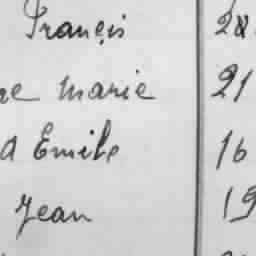 François 28
re Marie 21
d Emile 16
Jean 19